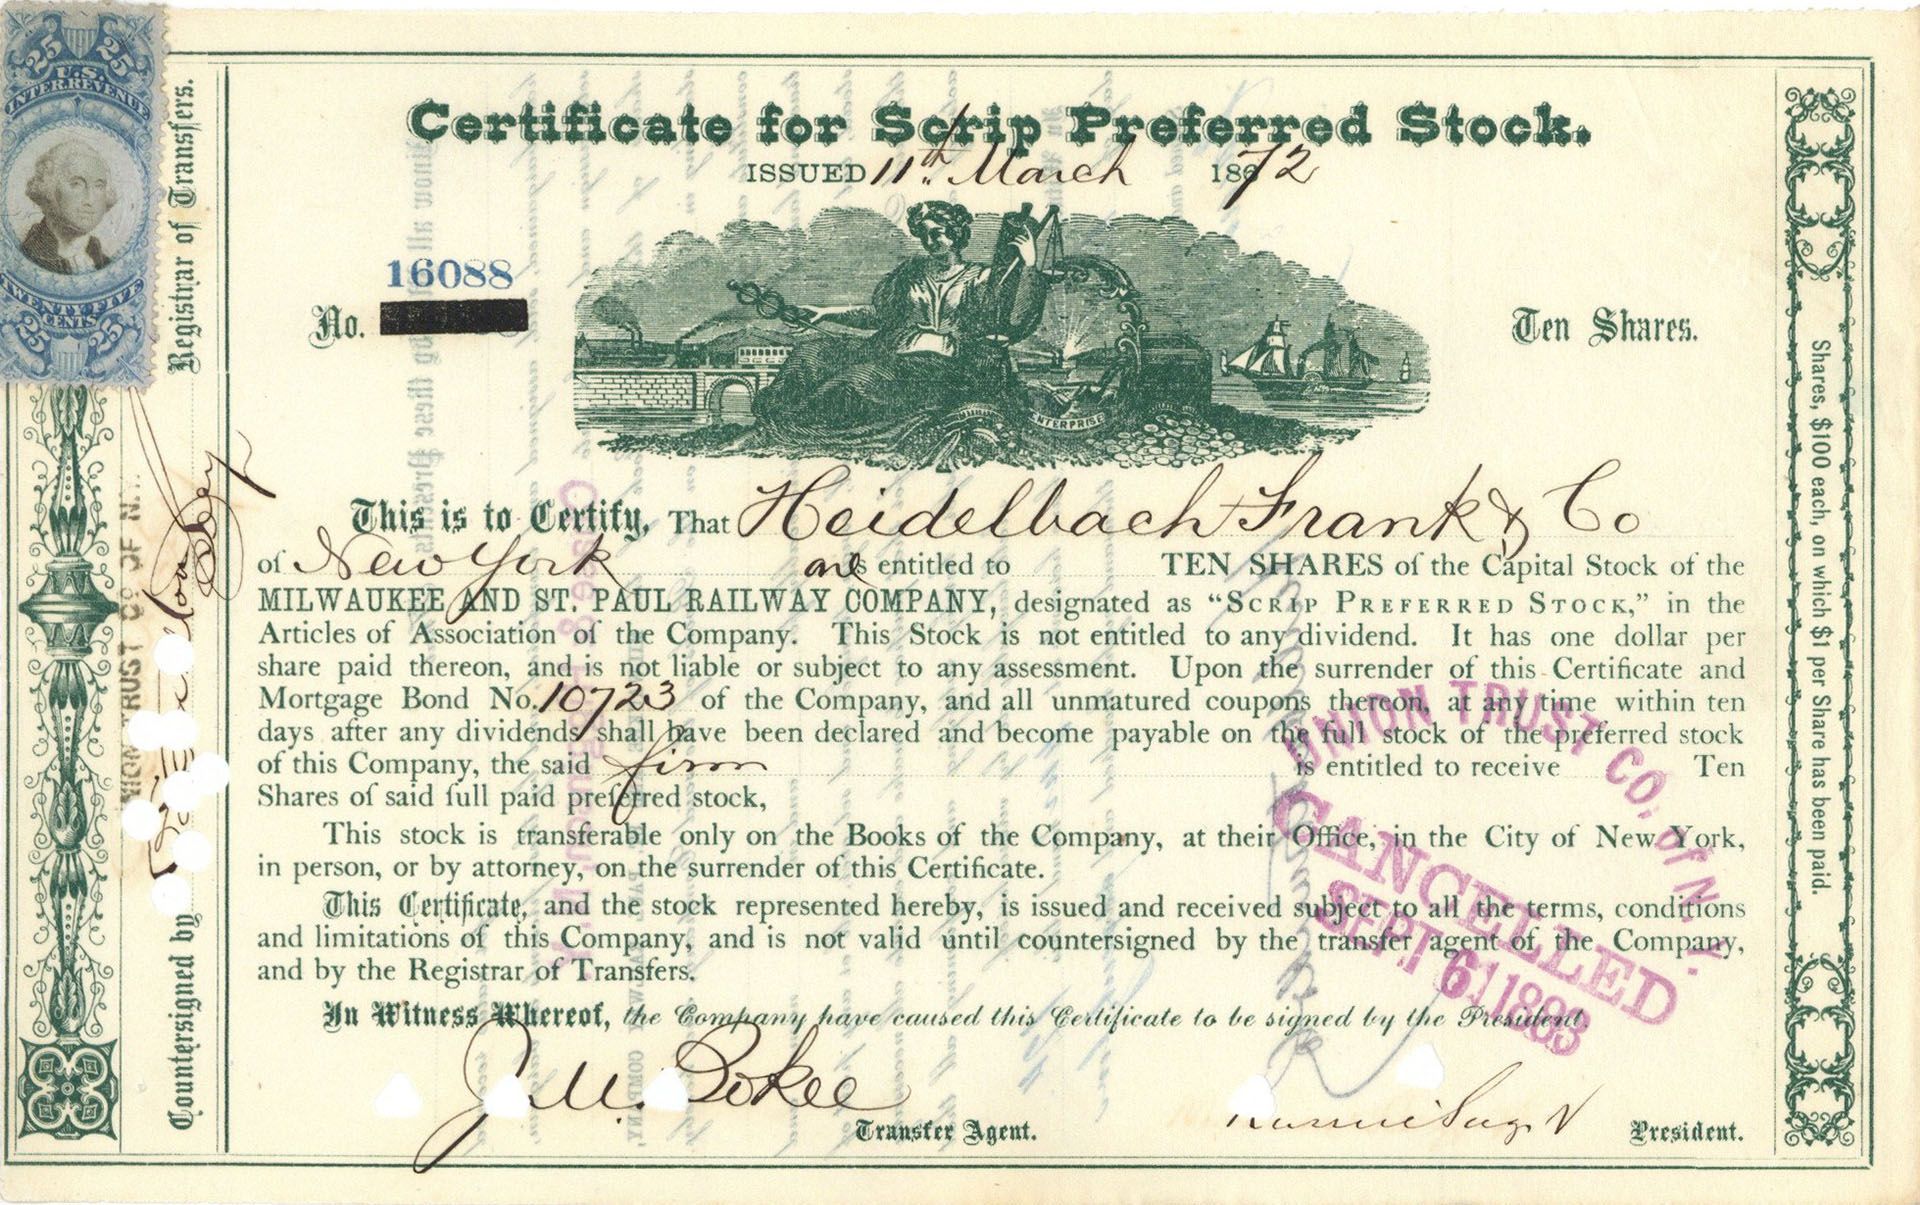 25 25
U.S.
INTER. REVENUE
TWENTY FIVE
CENTS
25 25
Registrar of Transfers.
Countersigned by
UNION TRUST CO. OF N.Y.
Certificate for Scrip Preferred Stock.
ISSUED 11th March 1872
16088
No.
Ten Shares.
ENTERPRISE
This is to Certify, That Heidelbach Frank & Co
of New York are entitled to TEN SHARES of the Capital Stock of the
MILWAUKEE AND ST. PAUL RAILWAY COMPANY, designated as “SCRIP PREFERRED STOCK,” in the
Articles of Association of the Company. This Stock is not entitled to any dividend. It has one dollar per
share paid thereon, and is not liable or subject to any assessment. Upon the surrender of this Certificate and
Mortgage Bond No. 10723 of the Company, and all unmatured coupons thereon, at any time within ten
days after any dividends shall have been declared and become payable on the full stock of the preferred stock
of this Company, the said firm is entitled to receive Ten
Shares of said full paid preferred stock,
This stock is transferable only on the Books of the Company, at their Office, in the City of New York,
in person, or by attorney, on the surrender of this Certificate.
This Certificate, and the stock represented hereby, is issued and received subject to all the terms, conditions
and limitations of this Company, and is not valid until countersigned by the transfer agent of the Company,
and by the Registrar of Transfers.
In Witness Whereof, the Company have caused this Certificate to be signed by the President.
UNION TRUST CO. OF N.Y.
CANCELLED
SEPT 6 1883
J. M. Bokee
Transfer Agent.
President.
Shares, $100 each, on which $1 per Share has been paid.